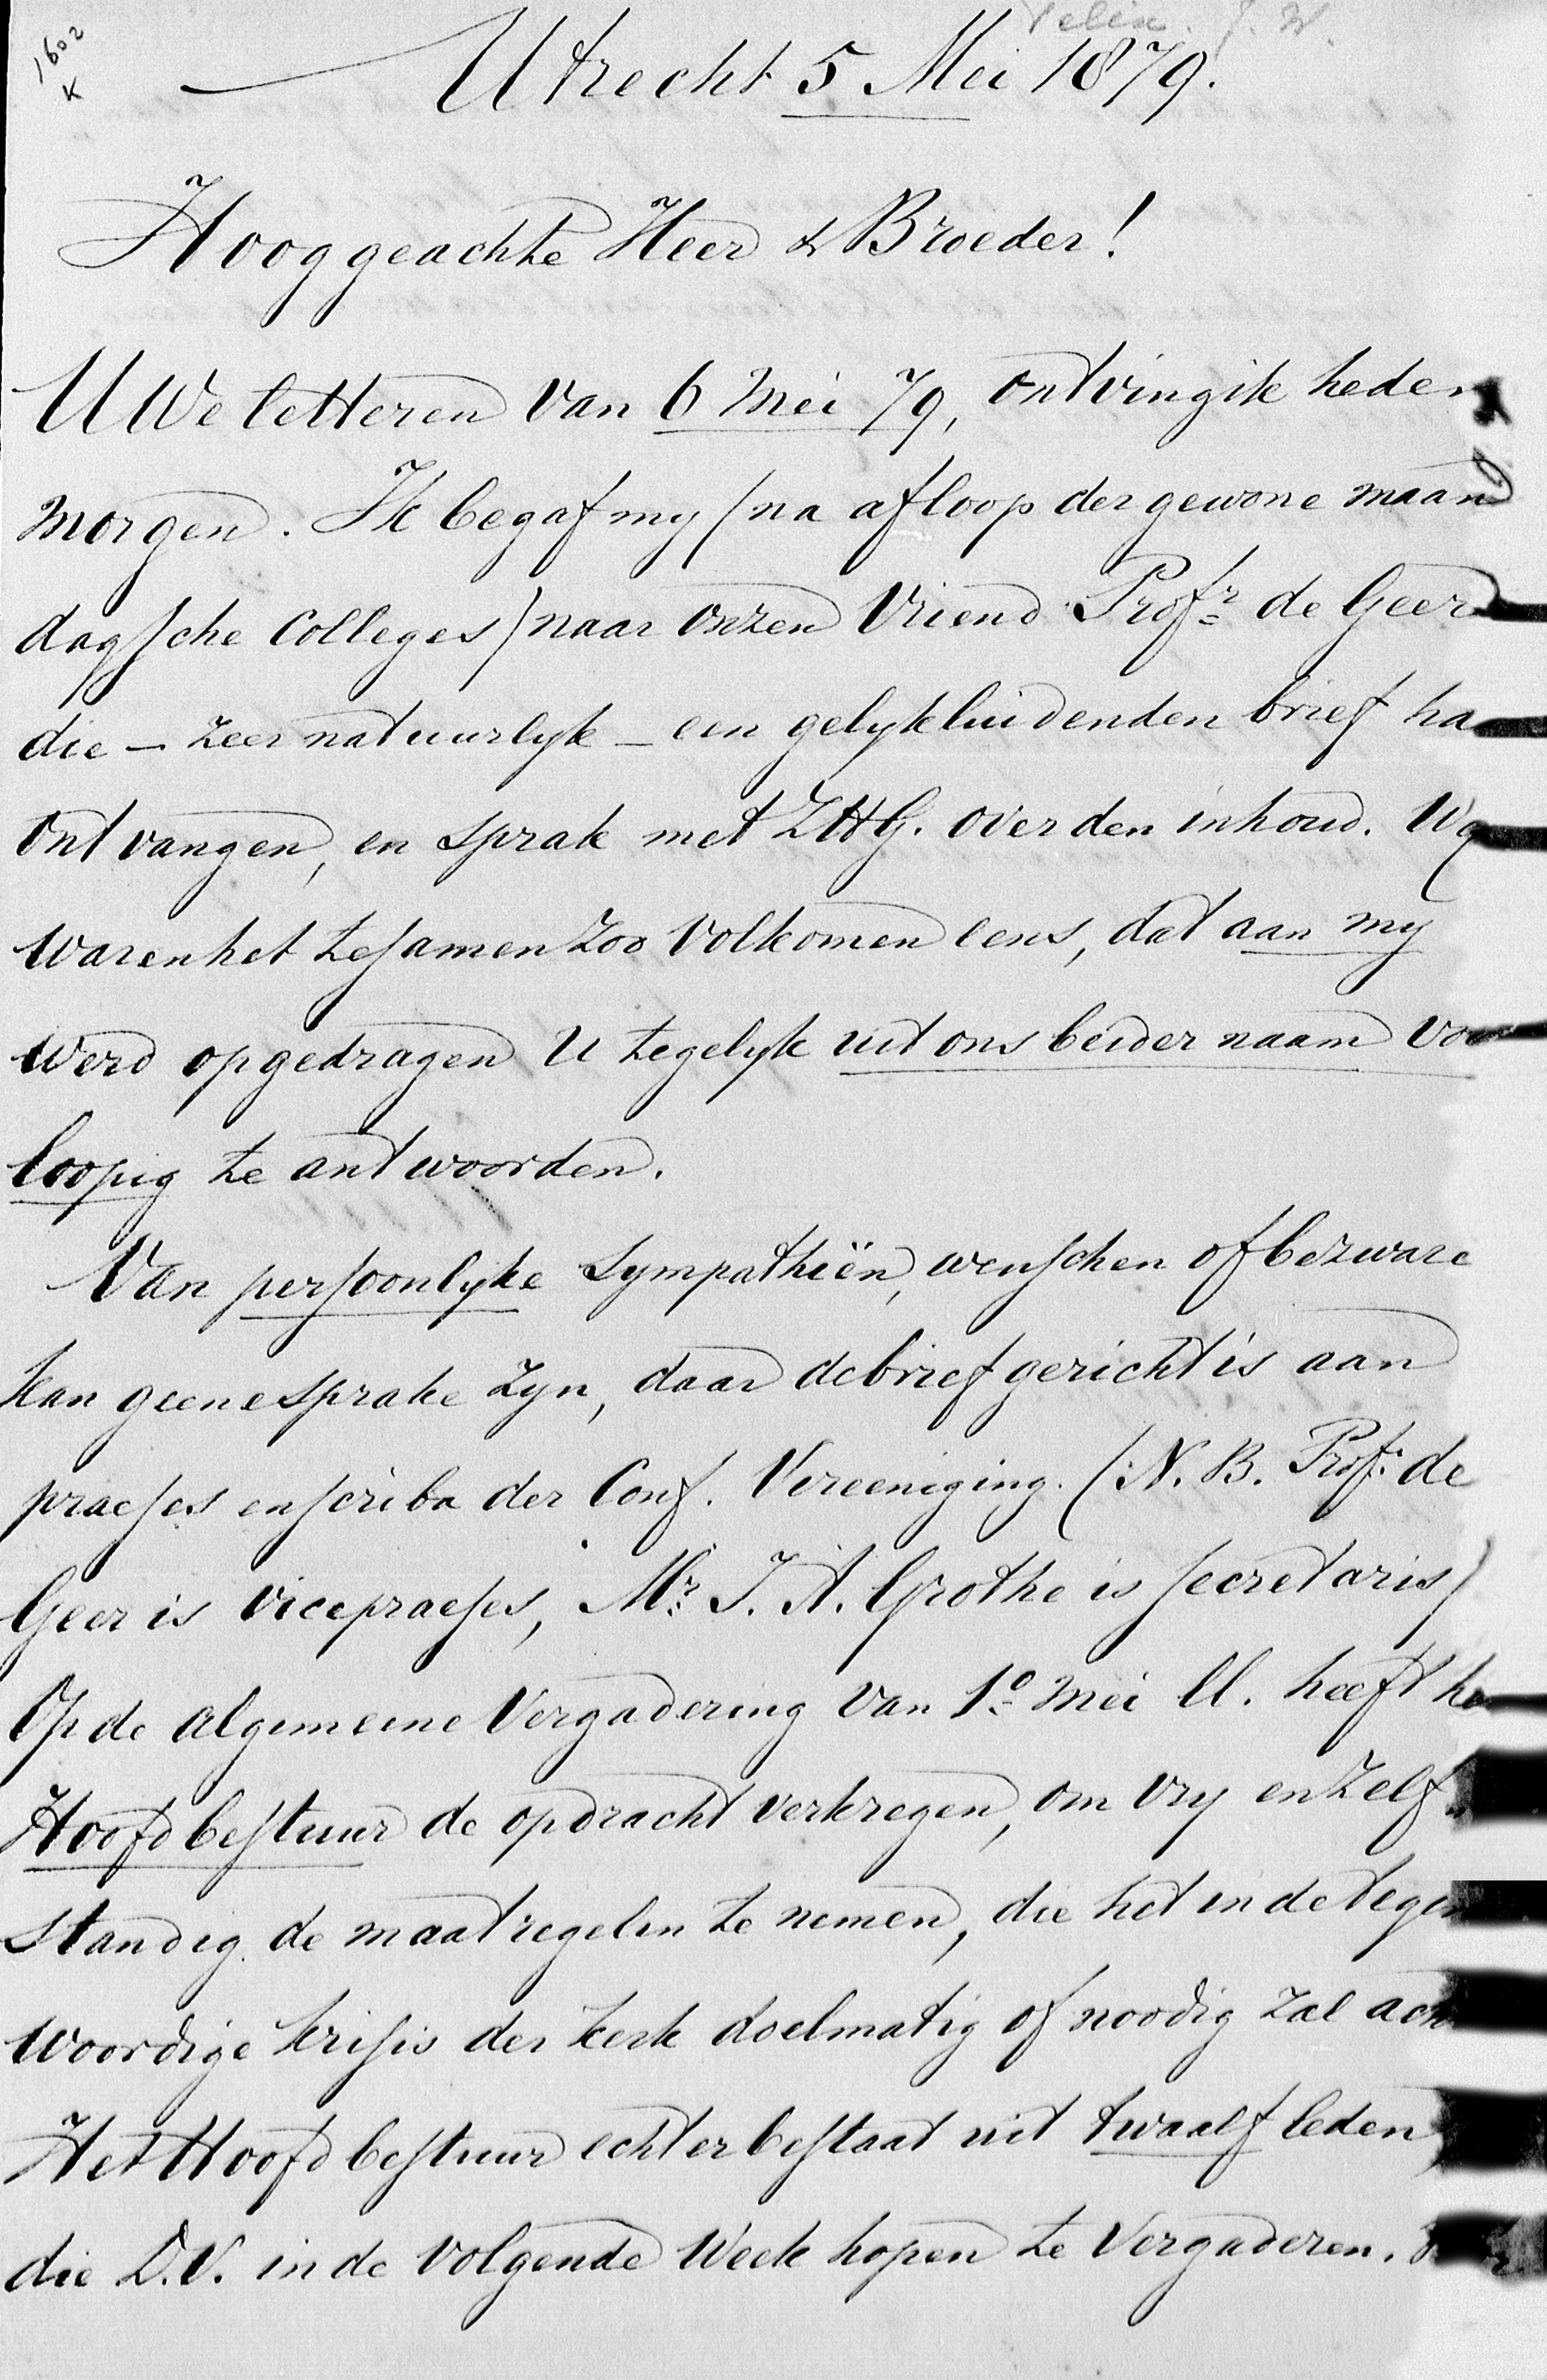 1602
K
Felix. J. W.
Utrecht 5 Mei 1879.
Hooggeachte Heer & Broeder!
UWe letteren van 6 Mei 79, ontving ik heden
morgen. Ik begaf my (na afloop der gewone maan
dagsche Colleges) naar onzen Vriend Profr de Geer
die – zeer natuurlyk – een gelykluidenden brief ha
ontvangen, en sprak met ZHG. over den inhoud. Wy
waren het tesamen zoo volkomen eens, dat aan my
werd opgedragen U tegelyk uit ons beider naam voor
loopig te antwoorden.
Van persoonlyke sympathiën, wenschen of bezware
kan geene sprake zyn, daar de brief gericht is aan
praeses en scriba der Conf. Vereeniging. (N.B. Prof. de
Geer is vicepraeses, Mr. J. A. Grothe is secretaris)
Op de algemeene Vergadering van 1o Mei ll. heeft he
Hoofdbestuur de opdracht verkregen, om vry en zelf
standig de maatregelen te nemen, die het in de tegen
woordige krisis der kerk doelmatig of noodig zal ach
Het Hoofdbestuur echter bestaat uit twaalf leden
die D.V. in de volgende week hopen te vergaderen.